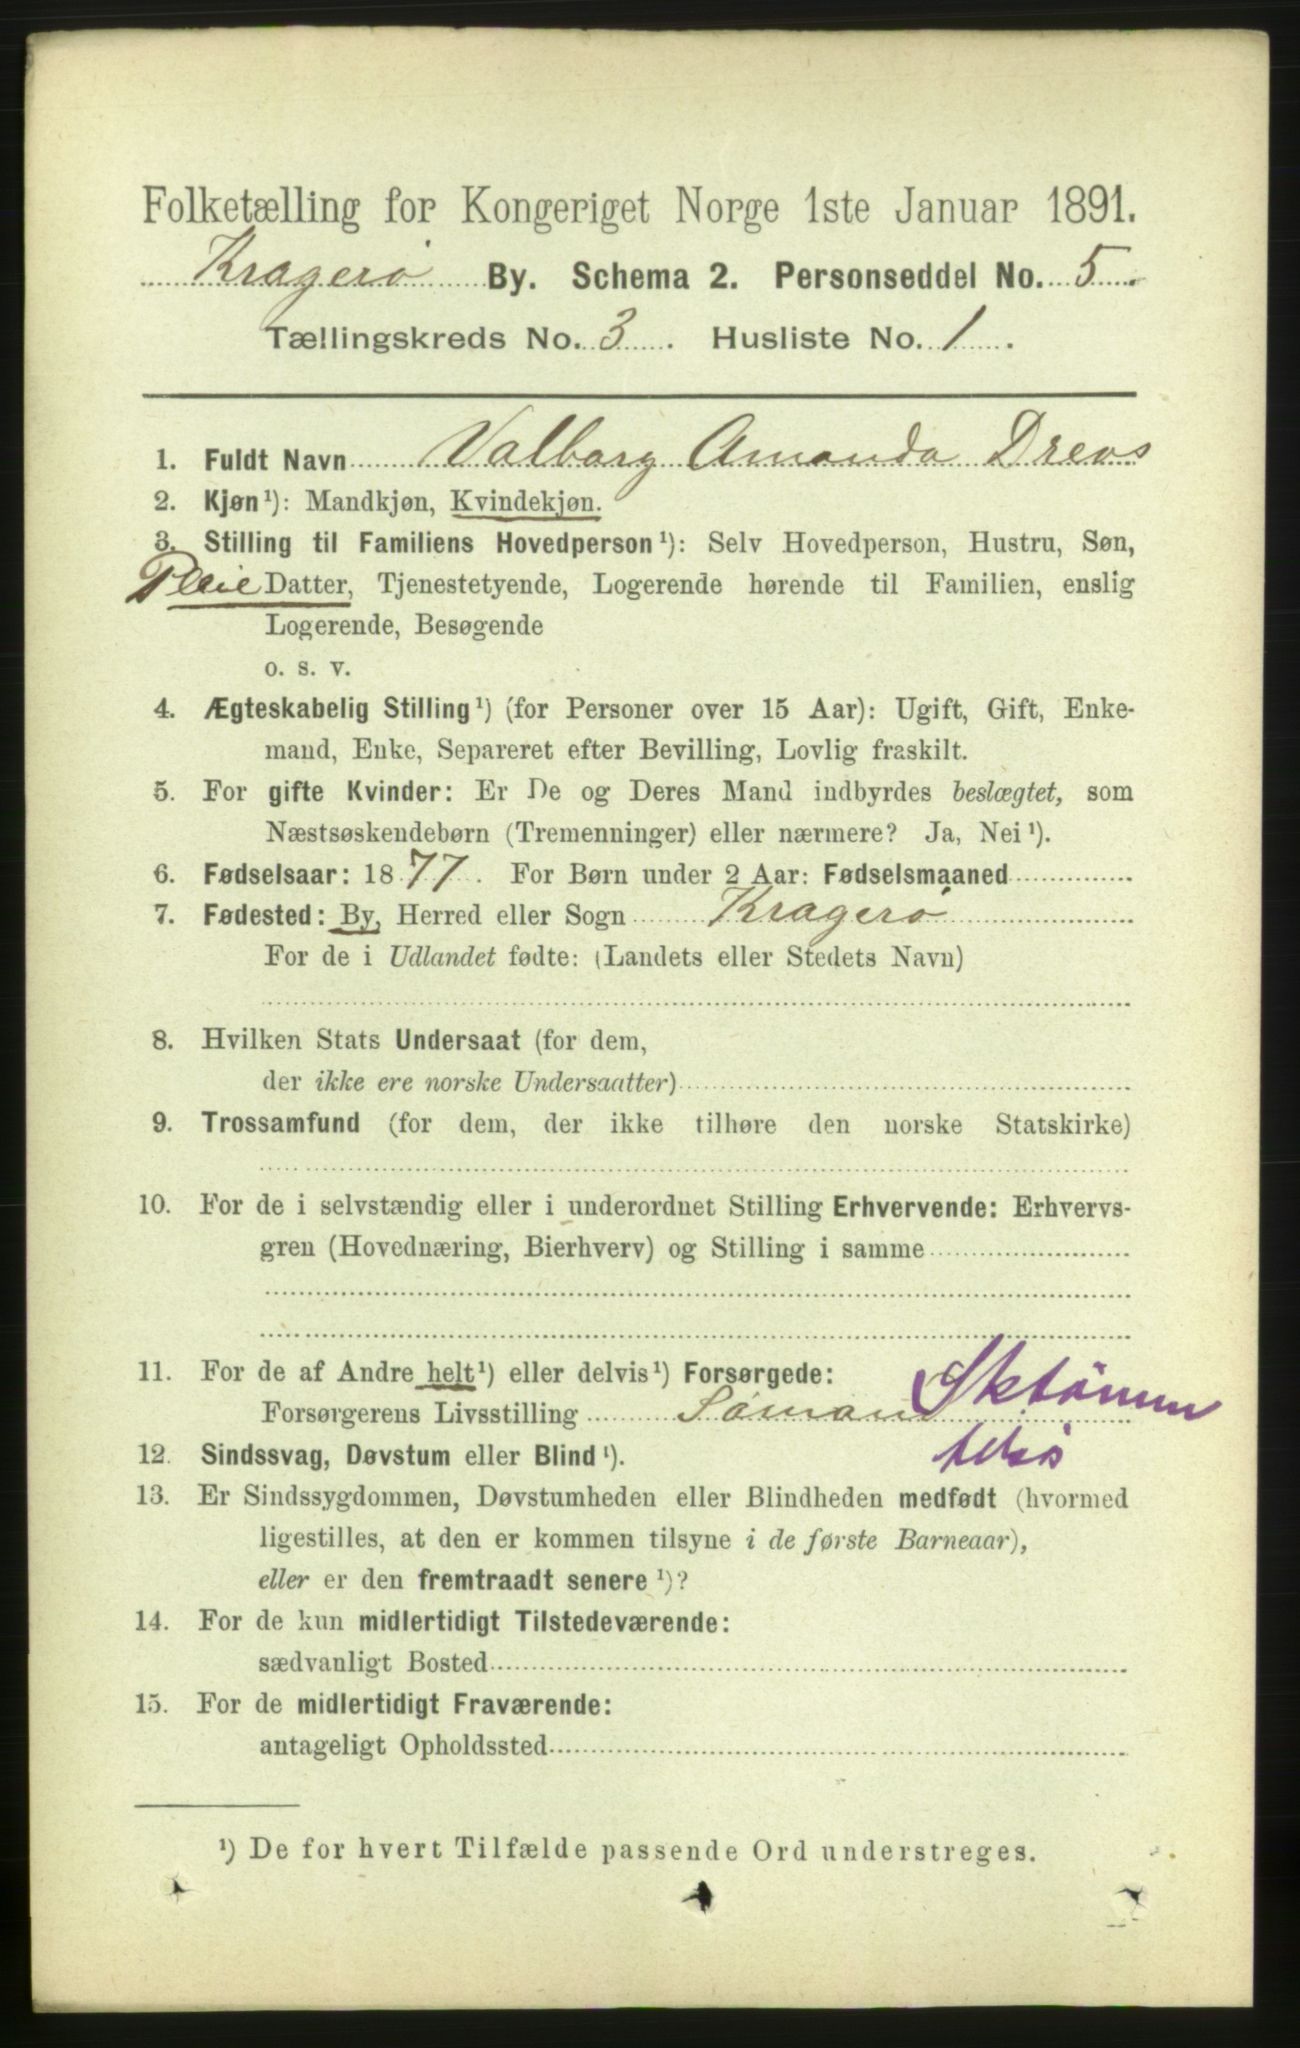 Folketælling for Kongeriget Norge 1ste Januar 1891.
Kragerø By. Schema 2. Personseddel No. 5.
Tællingskreds No. 3. Husliste No. 1.
1. Fuldt Navn Valborg Amanda Drevs
2. Kjøn¹): Mandkjøn, Kvindekjøn.
3. Stilling til Familiens Hovedperson¹): Selv Hovedperson, Hustru, Søn,
Pleie Datter, Tjenestetyende, Logerende hørende til Familien, enslig
Logerende, Besøgende
o. s. v.
4. Ægteskabelig Stilling¹) (for Personer over 15 Aar): Ugift, Gift, Enke-
mand, Enke, Separeret efter Bevilling, Lovlig fraskilt.
5. For gifte Kvinder: Er De og Deres Mand indbyrdes beslægtet, som
Næstsøskendebørn (Tremenninger) eller nærmere? Ja, Nei¹).
6. Fødselsaar: 1877. For Børn under 2 Aar: Fødselsmaaned
7. Fødested: By, Herred eller Sogn Kragerø
For de i Udlandet fødte: (Landets eller Stedets Navn)
8. Hvilken Stats Undersaat (for dem,
der ikke ere norske Undersaatter)
9. Trossamfund (for dem, der ikke tilhøre den norske Statskirke)
10. For de i selvstændig eller i underordnet Stilling Erhvervende: Erhvervs-
gren (Hovednæring, Bierhverv) og Stilling i samme
11. For de af Andre helt¹) eller delvis¹) Forsørgede:
Forsørgerens Livsstilling Sømand
12. Sindssvag, Døvstum eller Blind¹).
13. Er Sindssygdommen, Døvstumheden eller Blindheden medfødt (hvormed
ligestilles, at den er kommen tilsyne i de første Barneaar),
eller er den fremtraadt senere¹)?
14. For de kun midlertidigt Tilstedeværende:
sædvanligt Bosted
15. For de midlertidigt Fraværende:
antageligt Opholdssted
¹) De for hvert Tilfælde passende Ord understreges.